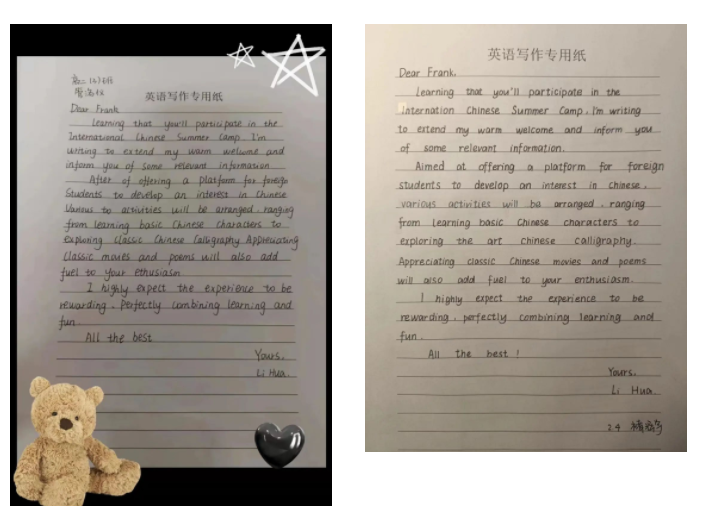 高二(4)班
英语写作专用纸
Dear Frank
Learning that you'll participate in the
International Chinese Summer Camp. I'm
writing to extend my warm welcome and
inform you of some relevant information
After of offering a platform for foreign
Students to develop an interest in Chinese
Various to activities will be arranged, ranging
from learning basic Chinese characters to
exploring Classic Chinese Calligraphy Appreciating
Classic movies and poems will also add
fuel to your ethusiasm
I highly expect the experience to be
rewarding, perfectly combining learning and
fun
All the best
Yours,
Li Hua.
英语写作专用纸
Dear Frank.
Learning that you'll participate in the
Internation Chinese Summer Camp, I'm writing
to extend my warm welcome and inform you
of some relevant information.
Aimed at offering a platform for foreign
students to develop an interest in Chinese,
various activities will be arranged, ranging
from learning basic Chinese characters to
exploring the art chinese calligraphy.
Appreciating classic Chinese movies and poems
will also add fuel to your enthusiasm.
I highly expect the experience to be
rewarding, perfectly combining learning and
fun.
All the best!
Yours,
Li Hua.
2.4